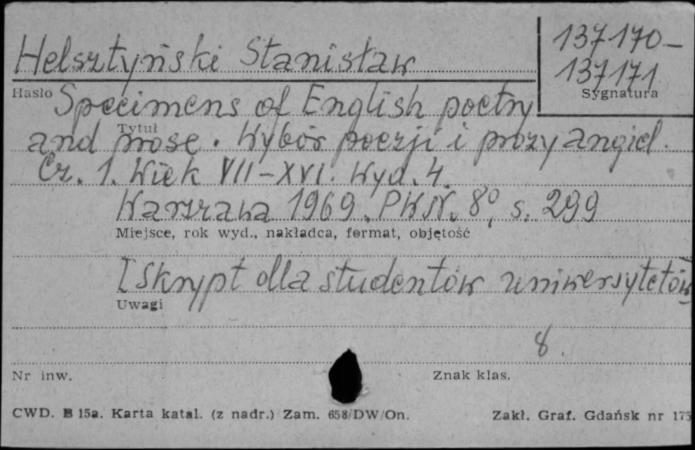 Helsztyński Stanisław
137170-
137171
Hasło
Sygnatura
Specimens of English poetry
Tytuł
and prose. Wybór poezji i prozy angiel.
Cz. 1. Wiek VII-XVI. Wyd. 4.
Warszawa 1969. PWN. 8°, s. 299
Miejsce, rok wyd., nakładca, format, objętość
[Skrypt dla studentów uniwersytetów
Uwagi
8.
Nr inw.
Znak klas.
CWD. B 15a. Karta katal. (z nadr.) Zam. 658/DW/On.
Zakł. Graf. Gdańsk nr 175